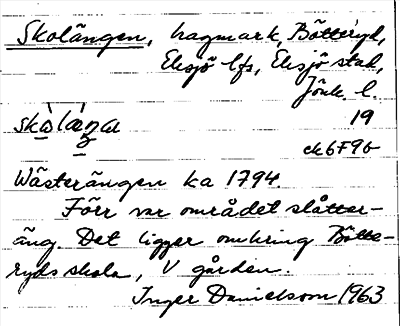 Skolängen, hagmark, Bötteryd,
Eksjö lfs, Eksjö stad,
Jönk. l.
19
ek6F96
Wästerängen ka 1794.
Förr var området slåtter-
äng. Det ligger omkring Bötte-
ryds skola, V gården.
Inger Danielsson 1963